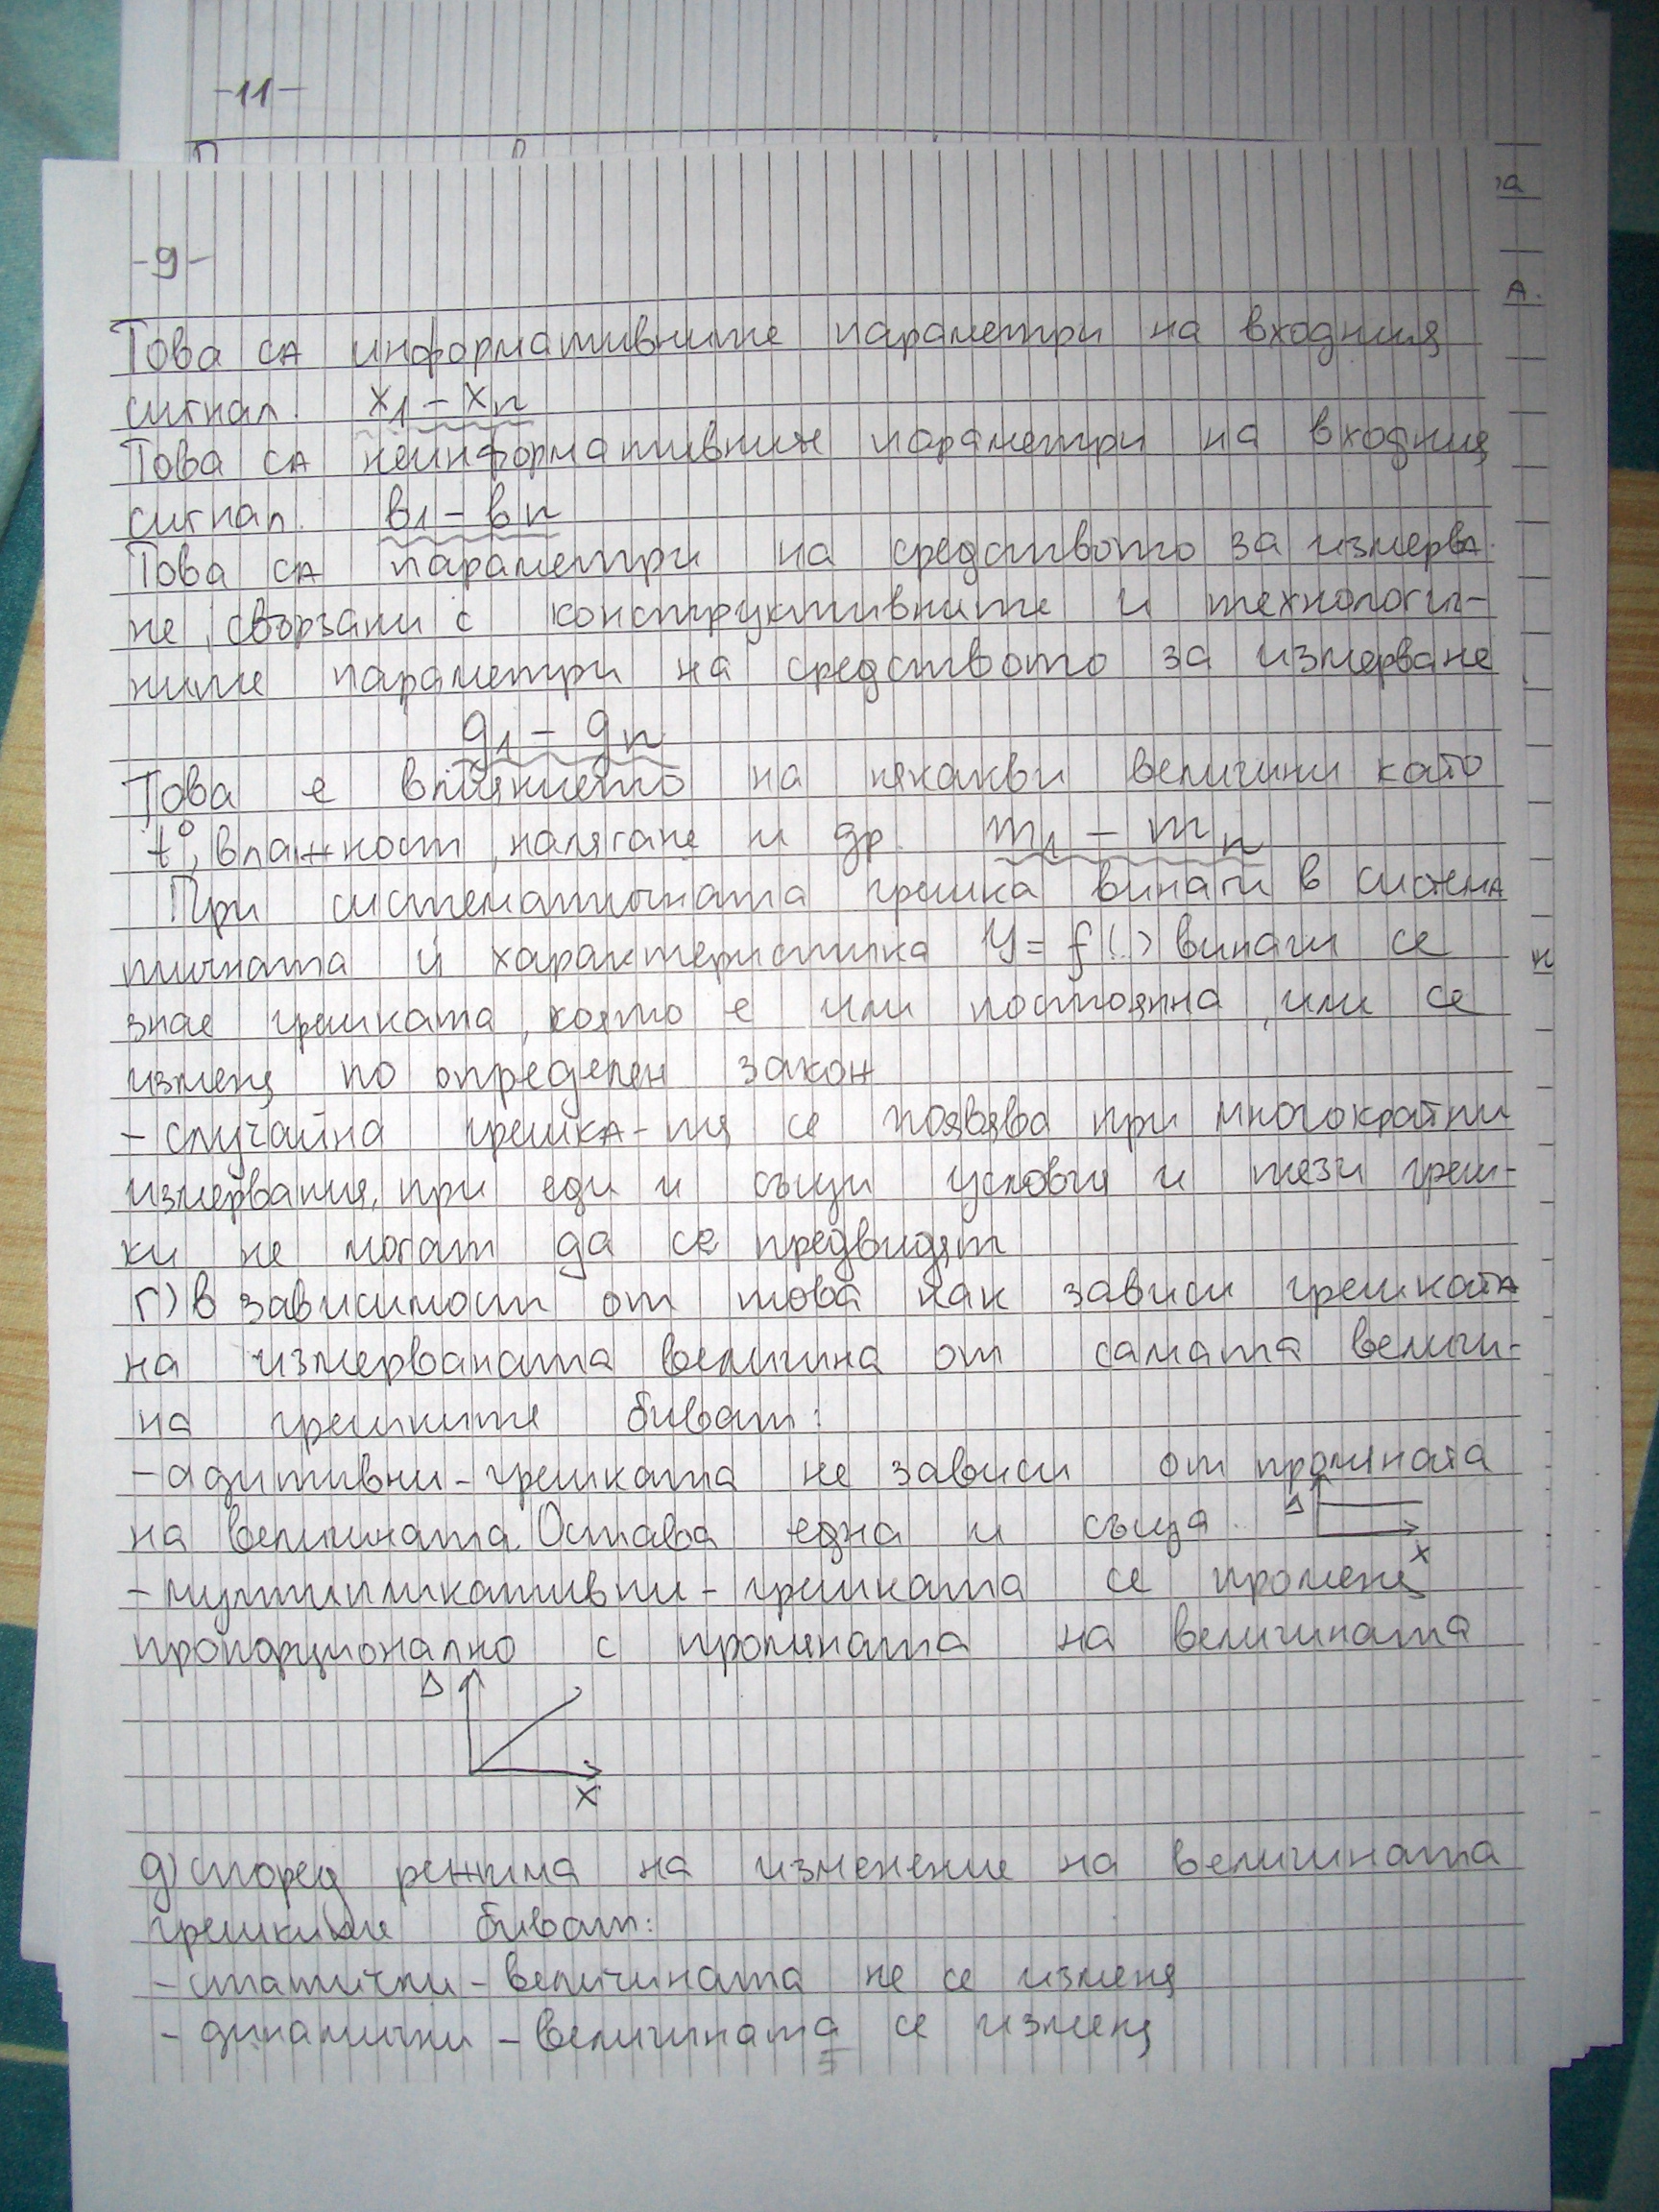 -11-
-9-
Това са информативните параметри на входния
сигнал. x1 - xn
Това са неинформативните параметри на входния
сигнал. в1 - вn
Това са параметри на средството за измерва-
не, свързани с конструктивните и технологич-
ните параметри на средството за измерване
g1 - gn
Това е влиянието на някакви величини като
t°, влажност, налягане и др. m1 - mn
При систематичната грешка винаги в система
тичната ѝ характеристика y = f(.) винаги се
знае грешката, която е или постоянна, или се
изменя по определен закон
- случайна грешка - тя се появява при многократни
измервания, при еди и същи условия и тези греш-
ки не могат да се предвидят
г) в зависимост от това как зависи грешката
на измерваната величина от самата величи-
на грешките биват:
- адитивни - грешката не зависи от промяната
на величината. Остава една и съща. Δ
x
- мултипликативни - грешката се променя
пропорционално с промяната на величината
Δ
x
д) според режима на изменение на величината
грешките биват:
- статични - величината не се изменя
- динамични - величината се изменя